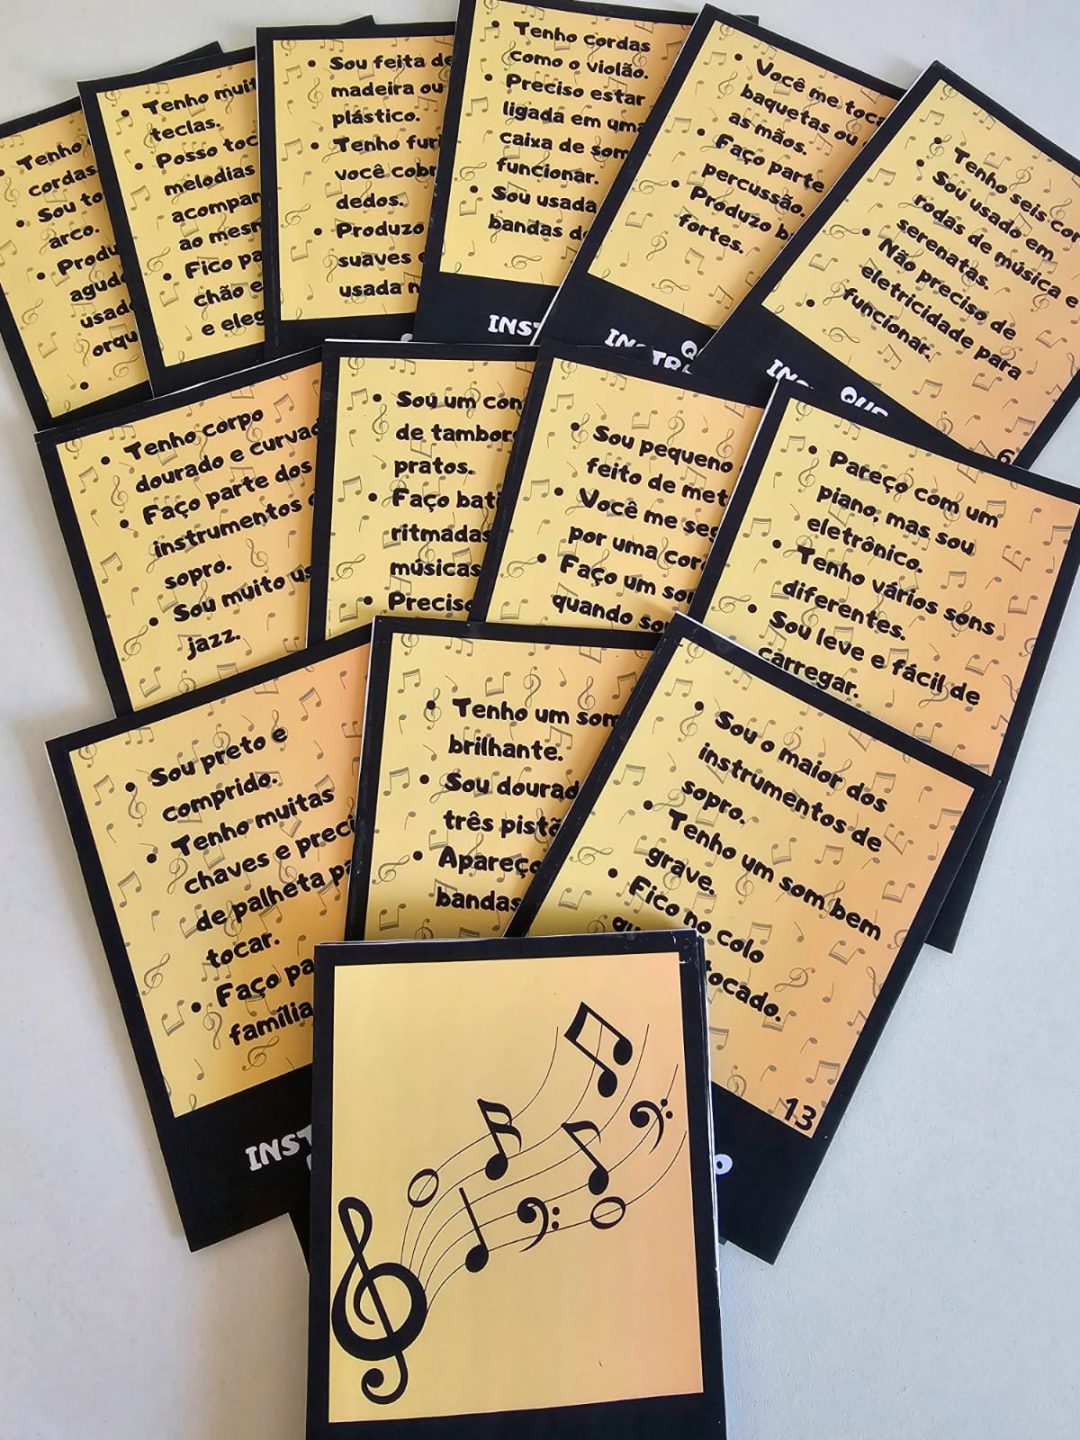 Tenho
cordas
Sou to
arco.
Produ
agud
usad
orqu
Tenho muit
teclas.
Posso toc
melodias
acompan
ao mesm
Fico pa
chão e
e eleg
Sou feita de
madeira ou
plástico.
Tenho fur
você cobr
dedos.
Produzo
suaves
usada n
Tenho cordas
como o violão.
Preciso estar
ligada em uma
caixa de som
funcionar.
Sou usada
bandas d
INST
Você me toca
baquetas ou
as mãos.
Faço parte
percussão.
Produzo b
fortes.
Q
INSTR
Tenho seis cor
Sou usado em
rodas de música e
serenatas.
Não preciso de
eletricidade para
funcionar.
QUE
IN
6
Tenho corpo
dourado e curvad
Faço parte dos
instrumentos
sopro.
Sou muito us
jazz.
Sou um con
de tambor
pratos.
Faço bati
ritmadas
músicas
Preciso
Sou pequeno
feito de met
Você me seg
por uma cor
Faço um som
quando so
Pareço com um
piano, mas sou
eletrônico.
Tenho vários sons
diferentes.
Sou leve e fácil de
carregar.
Sou preto e
comprido.
Tenho muitas
chaves e preci
de palheta pa
tocar.
Faço pa
família
INST
Tenho um som
brilhante.
Sou dourad
três pistõ
Apareço
bandas
Sou o maior dos
instrumentos de
sopro.
Tenho um som bem
grave.
Fico no colo
qu tocado.
13
O